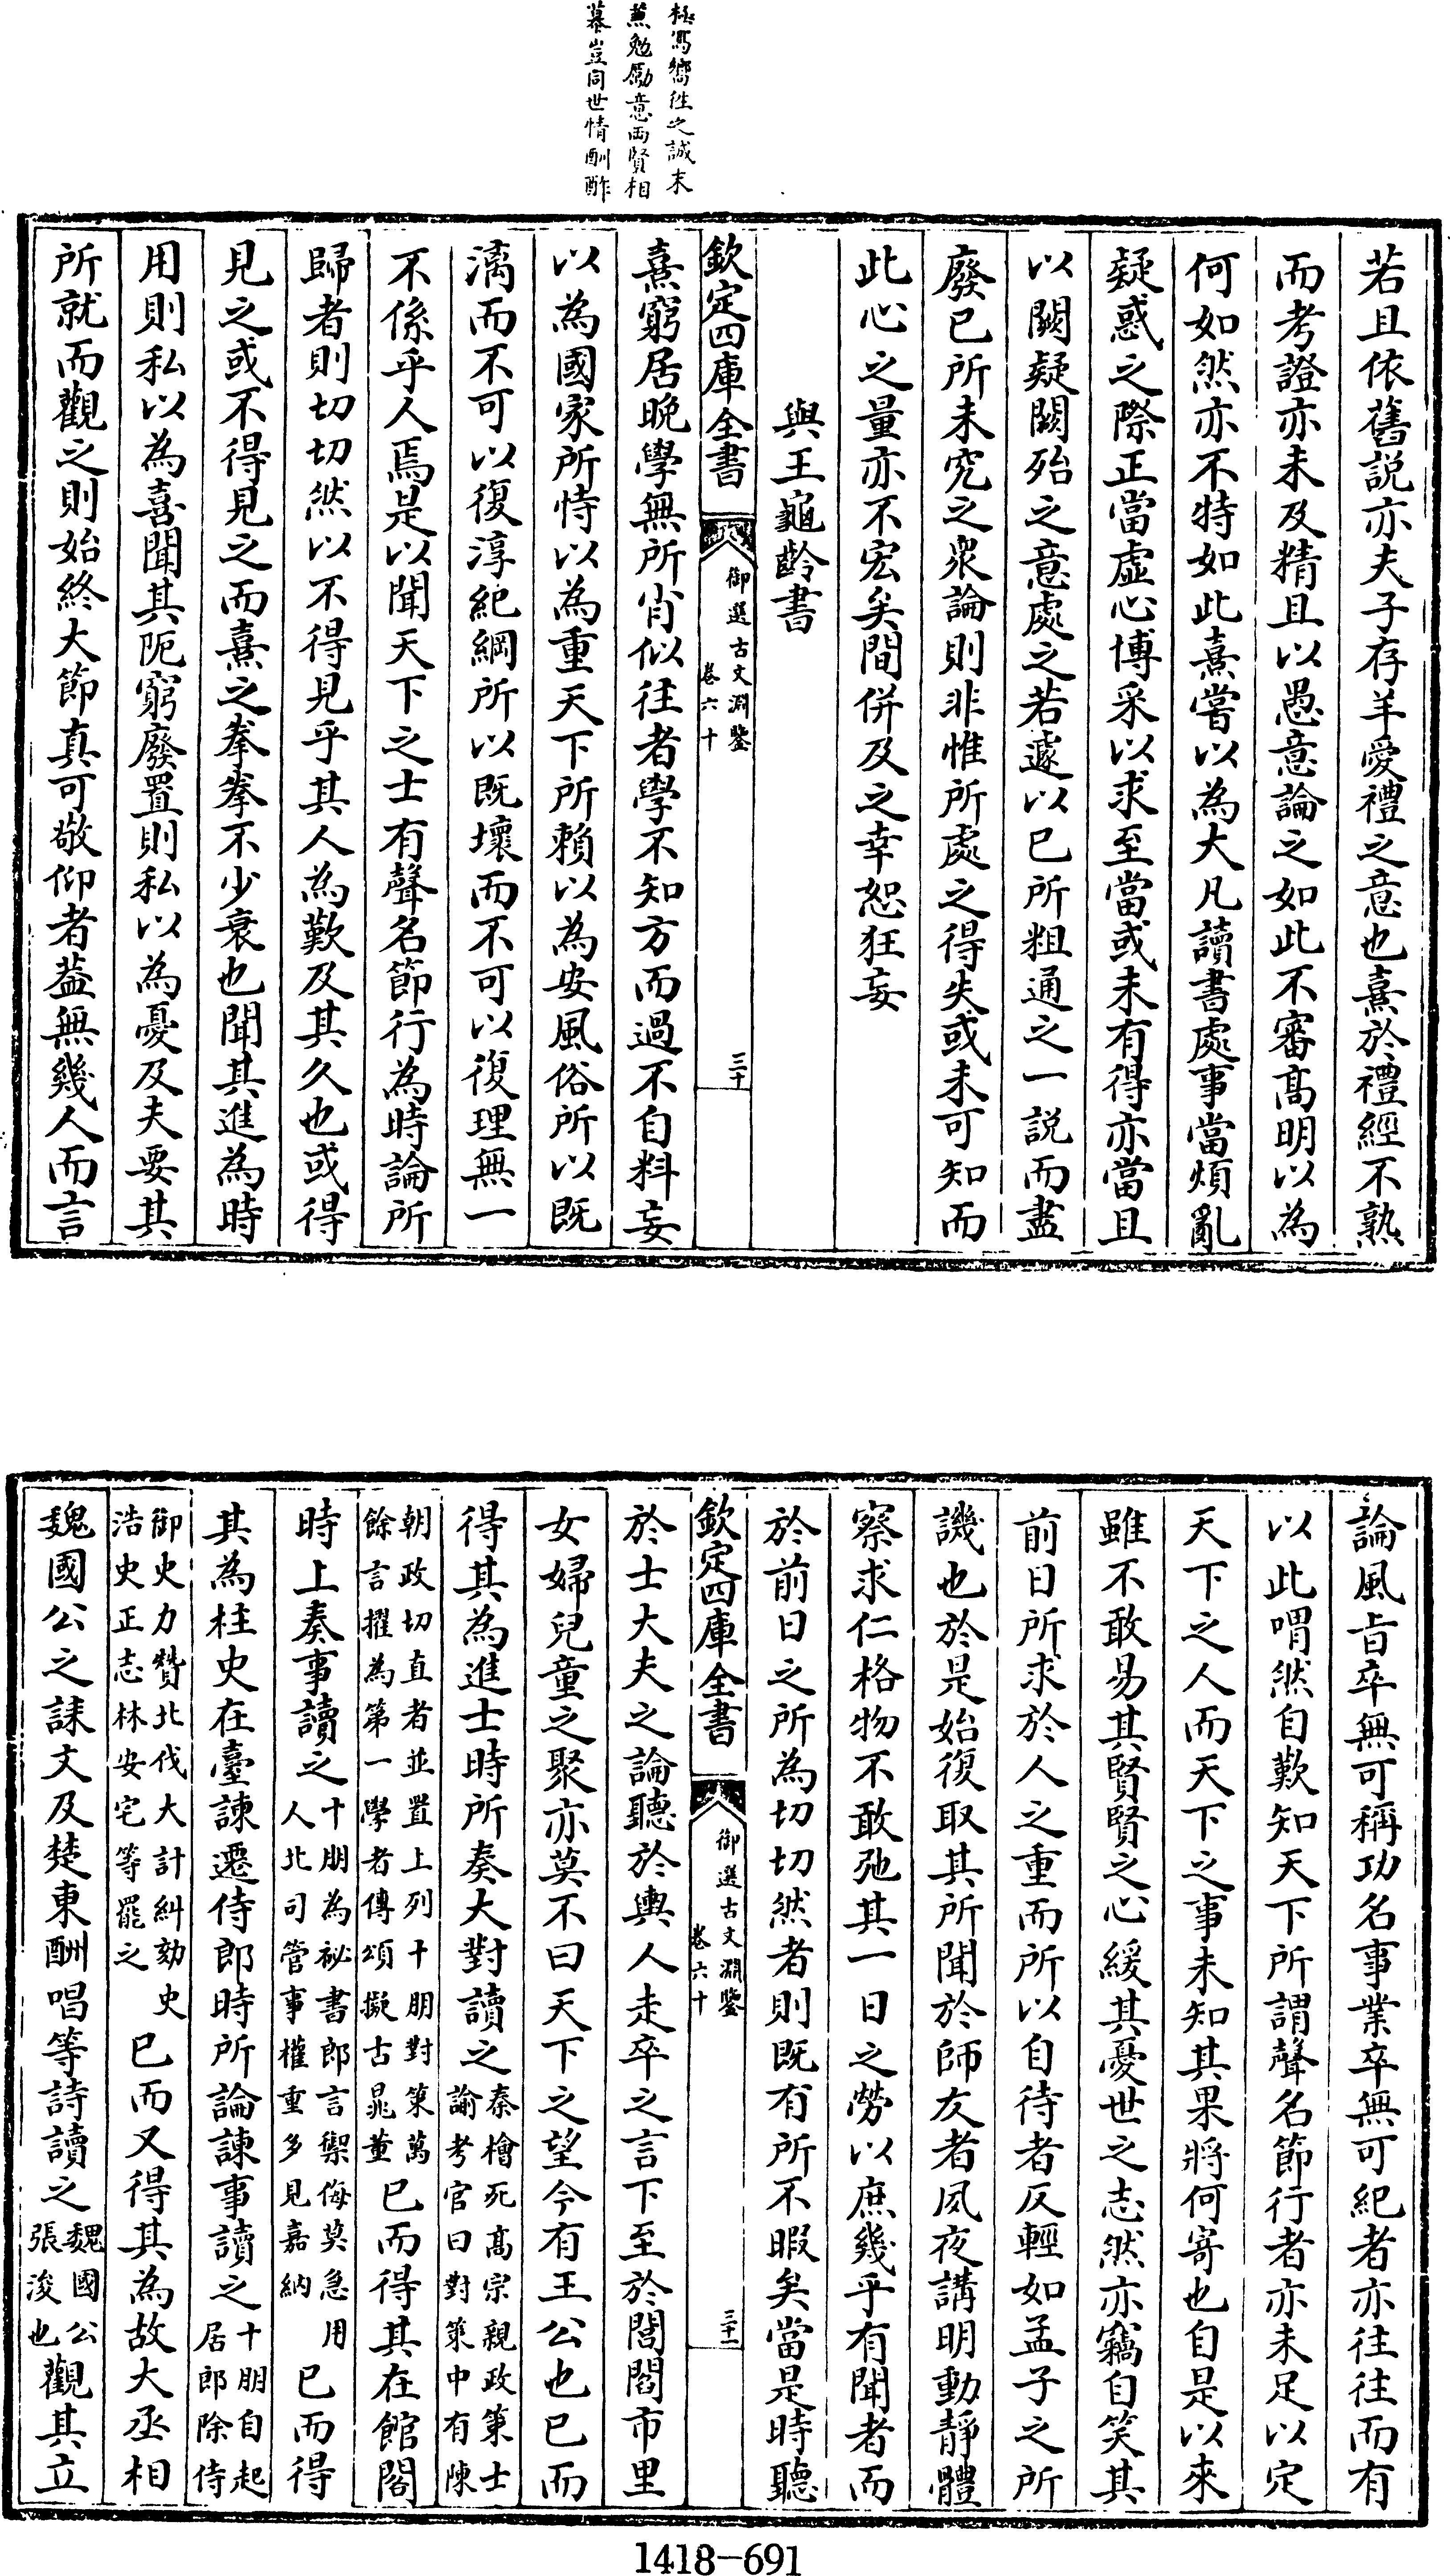 極寫嚮徃之誠末
蕉勉勵意兩賢相
慕豈同世情酬酢
若且依舊說亦夫子存羊愛禮之意也熹於禮經不熟
而考證亦未及精且以愚意論之如此不審髙明以為
何如然亦不特如此熹嘗以為大凡讀書處事當煩亂
疑惑之際正當虛心博采以求至當或未有得亦當且
以闕疑闕殆之意處之若遽以已所粗通之一說而盡
廢已所未究之衆論則非惟所處之得失或未可知而
此心之量亦不宏矣間併及之幸恕狂妄
與王龜齡書
欽定四庫全書
御選古文淵鑒
卷六十
三十
熹窮居晩學無所肖似往者學不知方而過不自料妄
以為國家所恃以為重天下所賴以為安風俗所以既
漓而不可以復淳紀綱所以既壞而不可以復理無一
不係乎人焉是以聞天下之士有聲名節行為時論所
歸者則切切然以不得見乎其人為歎及其久也或得
見之或不得見之而熹之拳拳不少衰也聞其進為時
用則私以為喜聞其阨窮廢置則私以為憂及夫要其
所就而觀之則始終大節真可敬仰者葢無幾人而言
論風旨卒無可稱功名事業卒無可紀者亦往往而有
以此喟然自歎知天下所謂聲名節行者亦未足以定
天下之人而天下之事未知其果將何寄也自是以來
雖不敢易其賢賢之心緩其憂世之志然亦竊自笑其
前日所求於人之重而所以自待者反輕如孟子之所
譏也於是始復取其所聞於師友者夙夜講明動靜體
察求仁格物不敢弛其一日之勞以庶幾乎有聞者而
於前日之所為切切然者則既有所不暇矣當是時聽
欽定四庫全書
御選古文淵鑒
卷六十
三十一
於士大夫之論聽於輿人走卒之言下至於閭閻市里
女婦兒童之聚亦莫不曰天下之望今有王公也已而
得其為進士時所奏大對讀之秦檜死髙宗親政策士
諭考官曰對策中有陳
朝政切直者並置上列十朋對策萬
餘言擢為第一學者傳頌擬古晁董已而得其在館閣
時上奏事讀之十朋為祕書郎言禦侮莫急用
人北司管事權重多見嘉納已而得
其為柱史在臺諫遷侍郎時所論諫事讀之十朋自起
居郎除侍
御史力贊北伐大計糾劾史
浩史正志林安宅等罷之已而又得其為故大丞相
魏國公之誄文及楚東酬唱等詩讀之魏國公
張浚也觀其立
1418-691